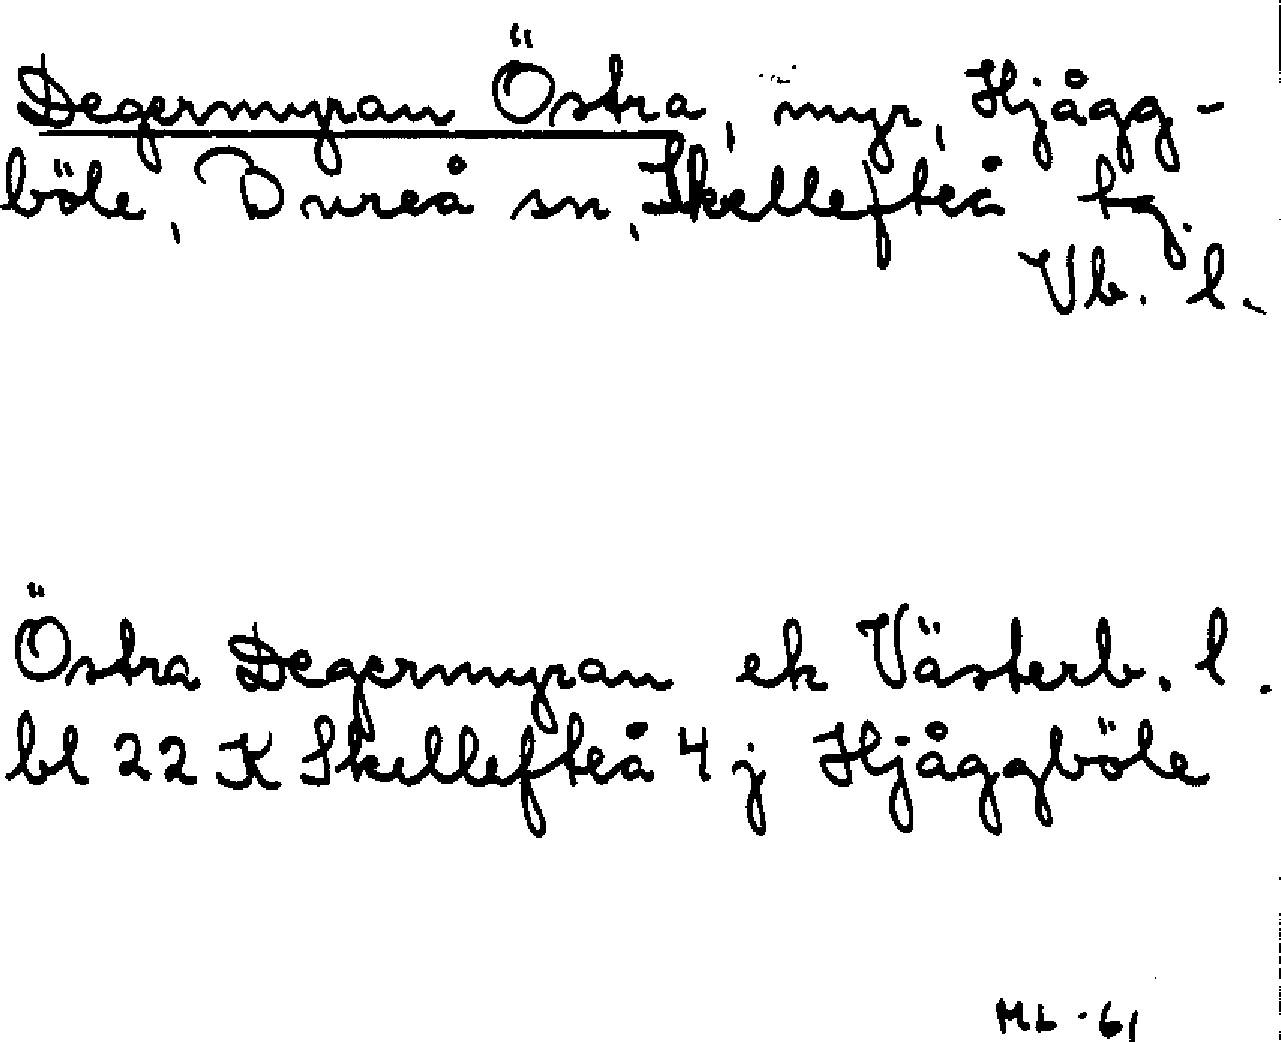 Degermyran Östra, myr, Hjågg-
böle, Bureå sn, Skellefteå tg.
Vb. l.
Östra Degermyran ek Västerb. l.
bl 22 K Skellefteå 4 j Hjåggböle
ML -61